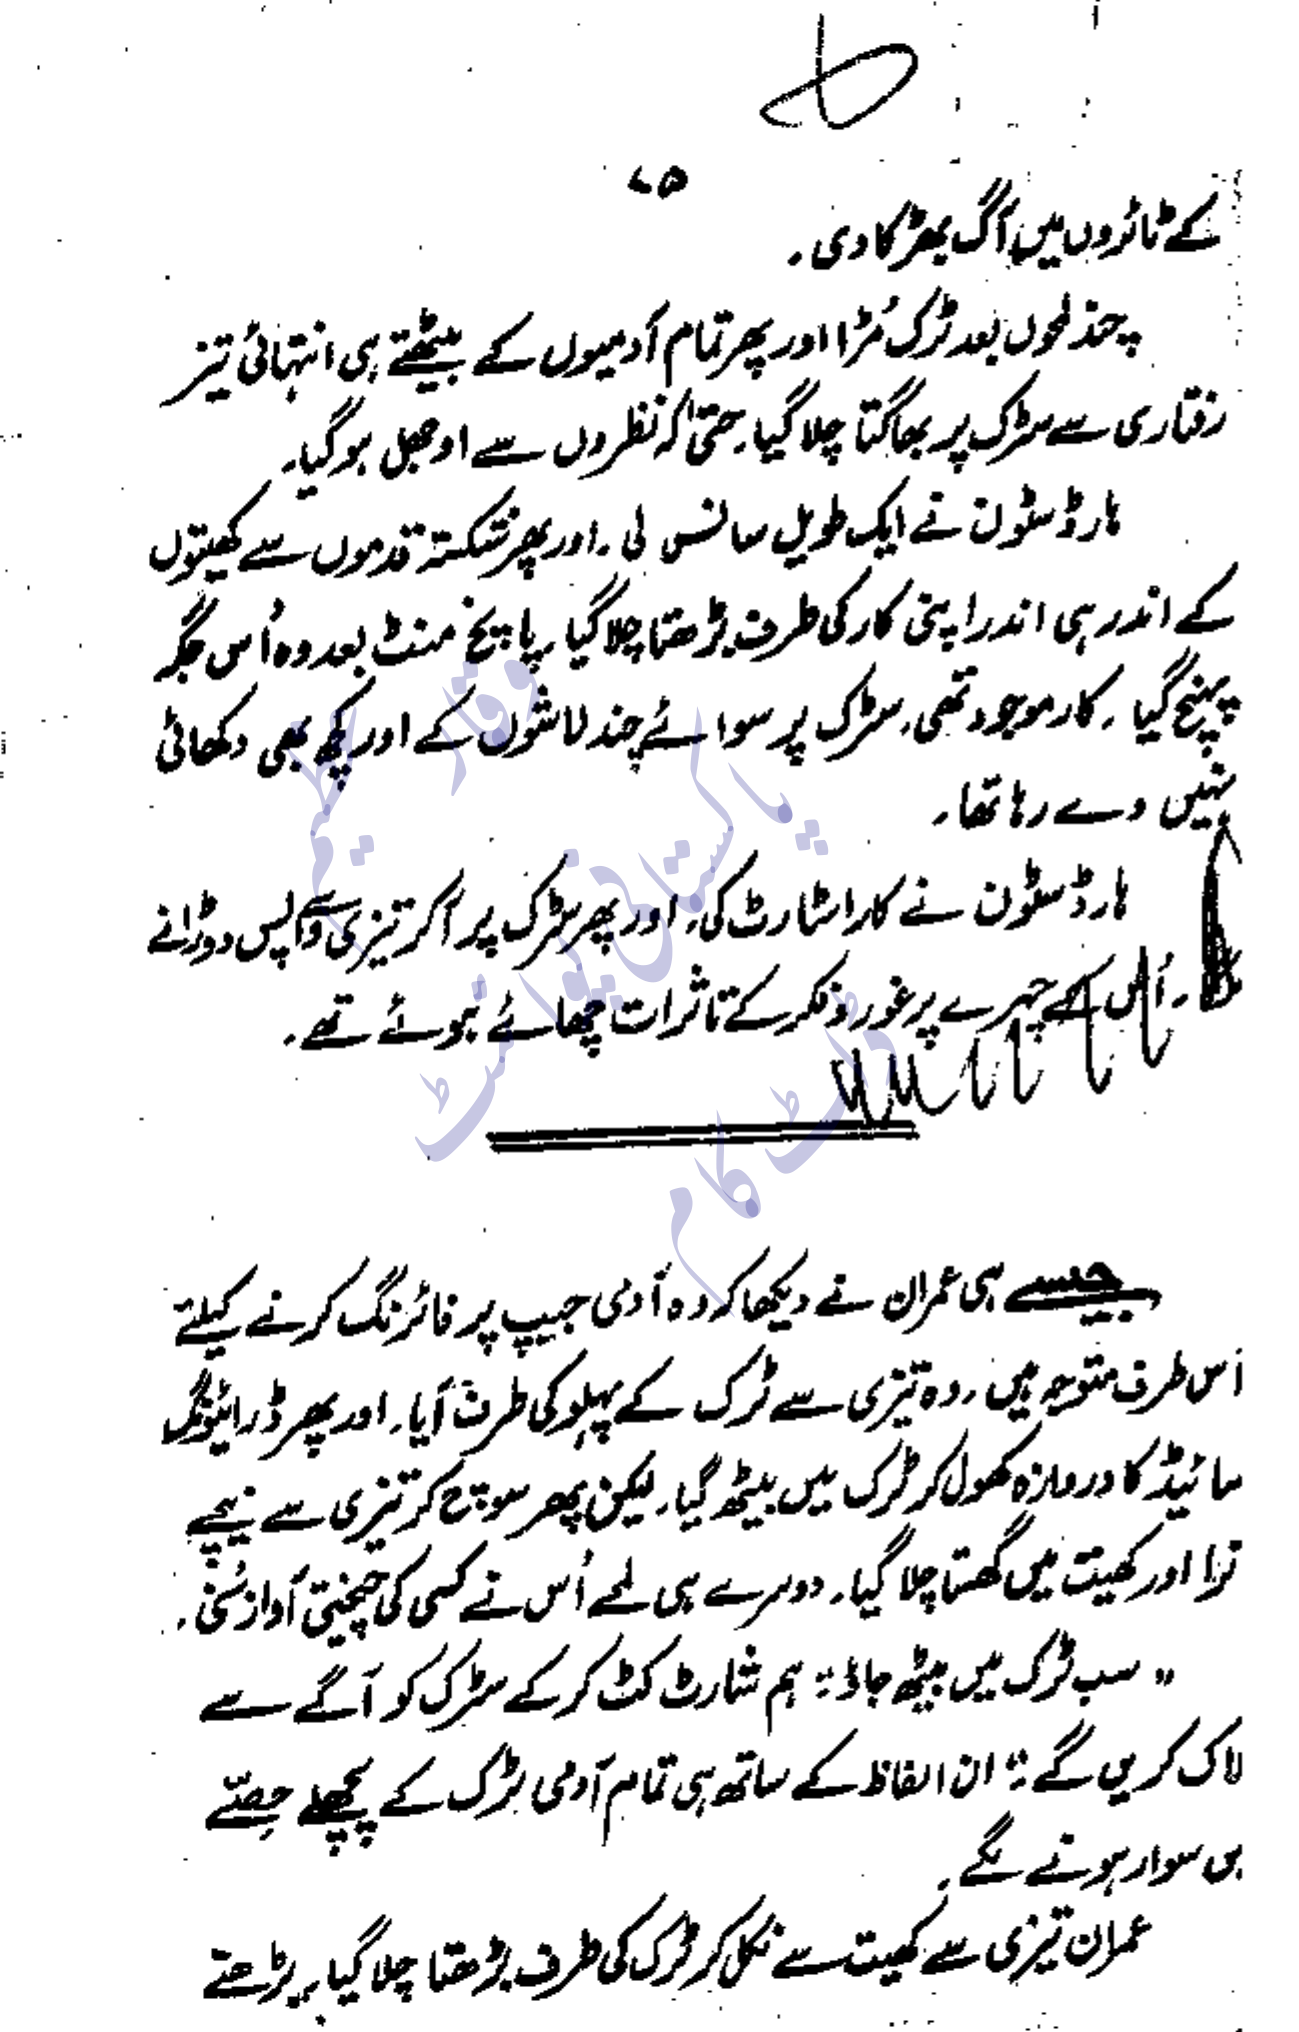 ۷۵
کے ٹائروں میں آگ بھڑکا دی۔
چند لمحوں بعد ٹرک مُڑا اور پھر تمام آدمیوں کے بیٹھتے ہی انتہائی تیز
رفتاری سے سڑک پر بھاگتا چلا گیا۔ حتیٰ کہ نظروں سے اوجھل ہو گیا۔
ہارڈ سٹون نے ایک طویل سانس لی۔ اور پھر شکستہ قدموں سے کھیتوں
کے اندر ہی اندر اپنی کار کی طرف بڑھتا چلا گیا۔ پانچ منٹ بعد وہ اُس جگہ
پہنچ گیا۔ کار موجود تھی۔ سڑک پر سوائے چند لاشوں کے اور کچھ بھی دکھائی
نہیں دے رہا تھا۔
ہارڈ سٹون نے کار اسٹارٹ کی۔ اور پھر سڑک پر آ کر تیزی سے واپس دوڑانے
۔ اُس کے چہرے پر غور و فکر کے تاثرات چھائے ہوئے تھے۔
جیسے ہی عمران نے دیکھا کہ وہ آدمی جیپ پر فائرنگ کرنے کیلئے
اس طرف متوجہ ہیں۔ وہ تیزی سے ٹرک کے پہلو کی طرف آیا۔ اور پھر ڈرائیونگ
سائیڈ کا دروازہ کھول کر ٹرک میں بیٹھ گیا۔ لیکن پھر سوچ کر تیزی سے نیچے
ترا اور کھیت میں گھستا چلا گیا۔ دوسرے ہی لمحے اُس نے کسی کی چیختی آواز سُنی۔
" سب ٹرک میں بیٹھ جاؤ؛ ہم شارٹ کٹ کر کے سڑک کو آگے سے
لاک کریں گے؛" ان الفاظ کے ساتھ ہی تمام آدمی ٹرک کے پچھلے حِصّے
یں سوار ہونے لگے۔
عمران تیزی سے کھیت سے نکل کر ٹرک کی طرف بڑھتا چلا گیا۔ بڑھتے
وقار عظیم
پاکستانی پوائنٹ
ڈاٹ کام